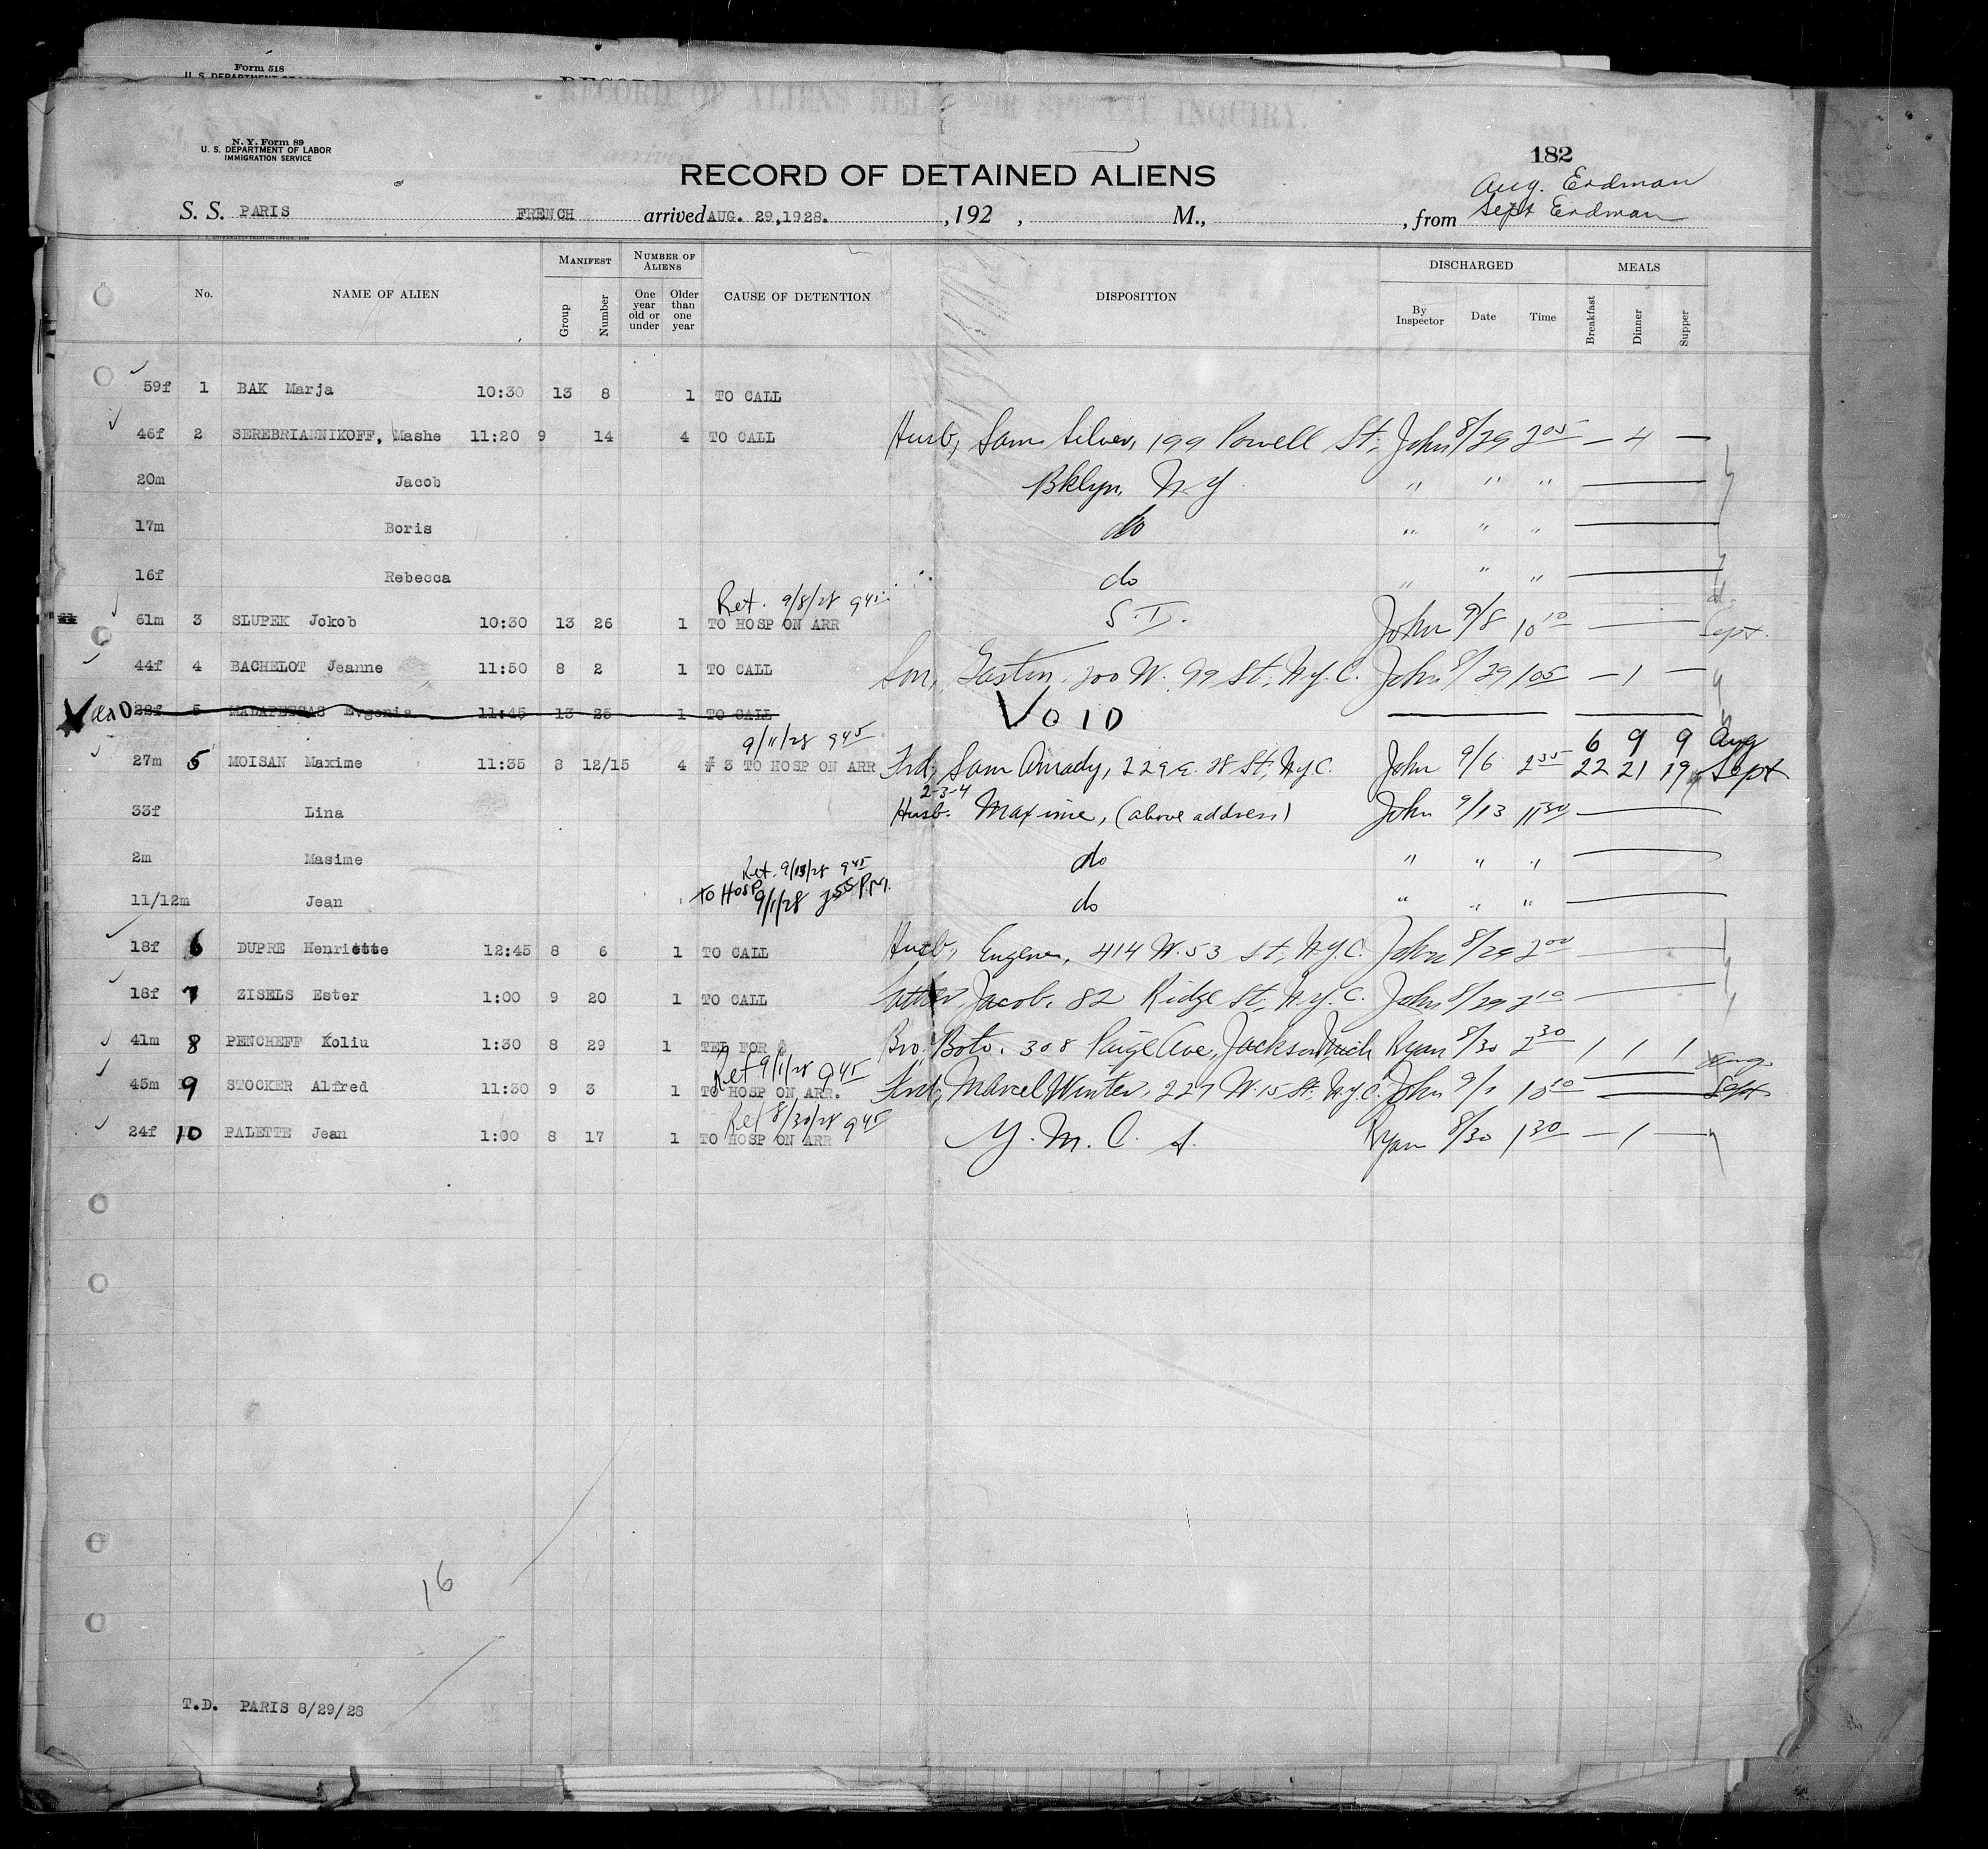 Form 518
RECORD OF ALIENS HELD FOR SPECIAL INQUIRY.
N. Y. Form 89
U. S. DEPARTMENT OF LABOR
IMMIGRATION SERVICE
182
RECORD OF DETAINED ALIENS
Aug. Erdman
Sept Erdman
S. S. PARIS FRENCH arrived AUG. 29,1928. , 192 , M., , from
No. NAME OF ALIEN MANIFEST Group Number NUMBER OF ALIENS One year old or under Older than one year CAUSE OF DETENTION DISPOSITION DISCHARGED By Inspector Date Time MEALS Breakfast Dinner Supper
59f 1 BAK Marja 10:30 13 8 1 TO CALL
46f 2 SEREBRIANNIKOFF, Mashe 11:20 9 14 4 TO CALL Husb, Sam Silver, 199 Powell St, John 8/29 2 05 — 4 —
20m Jacob Bklyn, N.Y. " " "
17m Boris do " " "
16f Rebecca do " " "
Ret. 9/8/28 9 45
61m 3 SLUPEK Jokob 10:30 13 26 1 TO HOSP ON ARR S.I. John 9/8 10 10 Sept.
44f 4 BACHELOT Jeanne 11:50 8 2 1 TO CALL Son, Gastin, 200 W. 99 St, N.Y.C. John 8/29 1 05 — 1 —
22f 5 MALAPETSAS Evgenia 11:45 13 25 1 TO CALL VOID
9/11/28 9 45 6 9 9 Aug
27m 5 MOISAN Maxime 11:35 8 12/15 4 # 3 TO HOSP ON ARR Frd, Sam Amady, 229 E. 28 St, N.Y.C. John 9/6 2 35 22 21 19 Sept
2-3-4
33f Lina Husb. Maxime, (above address) John 9/13 11 30
2m Masime do " " "
Ret. 9/13/28 9 45
TO HOSP 9/1/28 P.M.
11/12m Jean do " " "
18f 6 DUPRE Henriette 12:45 8 6 1 TO CALL Husb, Eugene, 414 W. 53 St, N.Y.C. John 8/29 2 00
18f 7 ZISELS Ester 1:00 9 20 1 TO CALL Jacob, 82 Ridge St, N.Y.C. John 8/29 2 10
41m 8 PENCHEFF Koliu 1:30 8 29 1 TEL FOR $ Bro, Boto, 308 Paige Ave, Jackson Mich Ryan 8/30 2 30 1 1 1 Aug
Ret 9/1/28 9 45
45m 9 STOCKER Alfred 11:30 9 3 1 TO HOSP ON ARR. Frd, Marcel Winter, 227 W. 15 St, N.Y.C. John 9/1 10 10 Sept
Ret 8/30/28 9 45
24f 10 PALETTE Jean 1:00 8 17 1 TO HOSP ON ARR Y. M. C. A. Ryan 8/30 1 30 — 1 —
16
T.D. PARIS 8/29/28